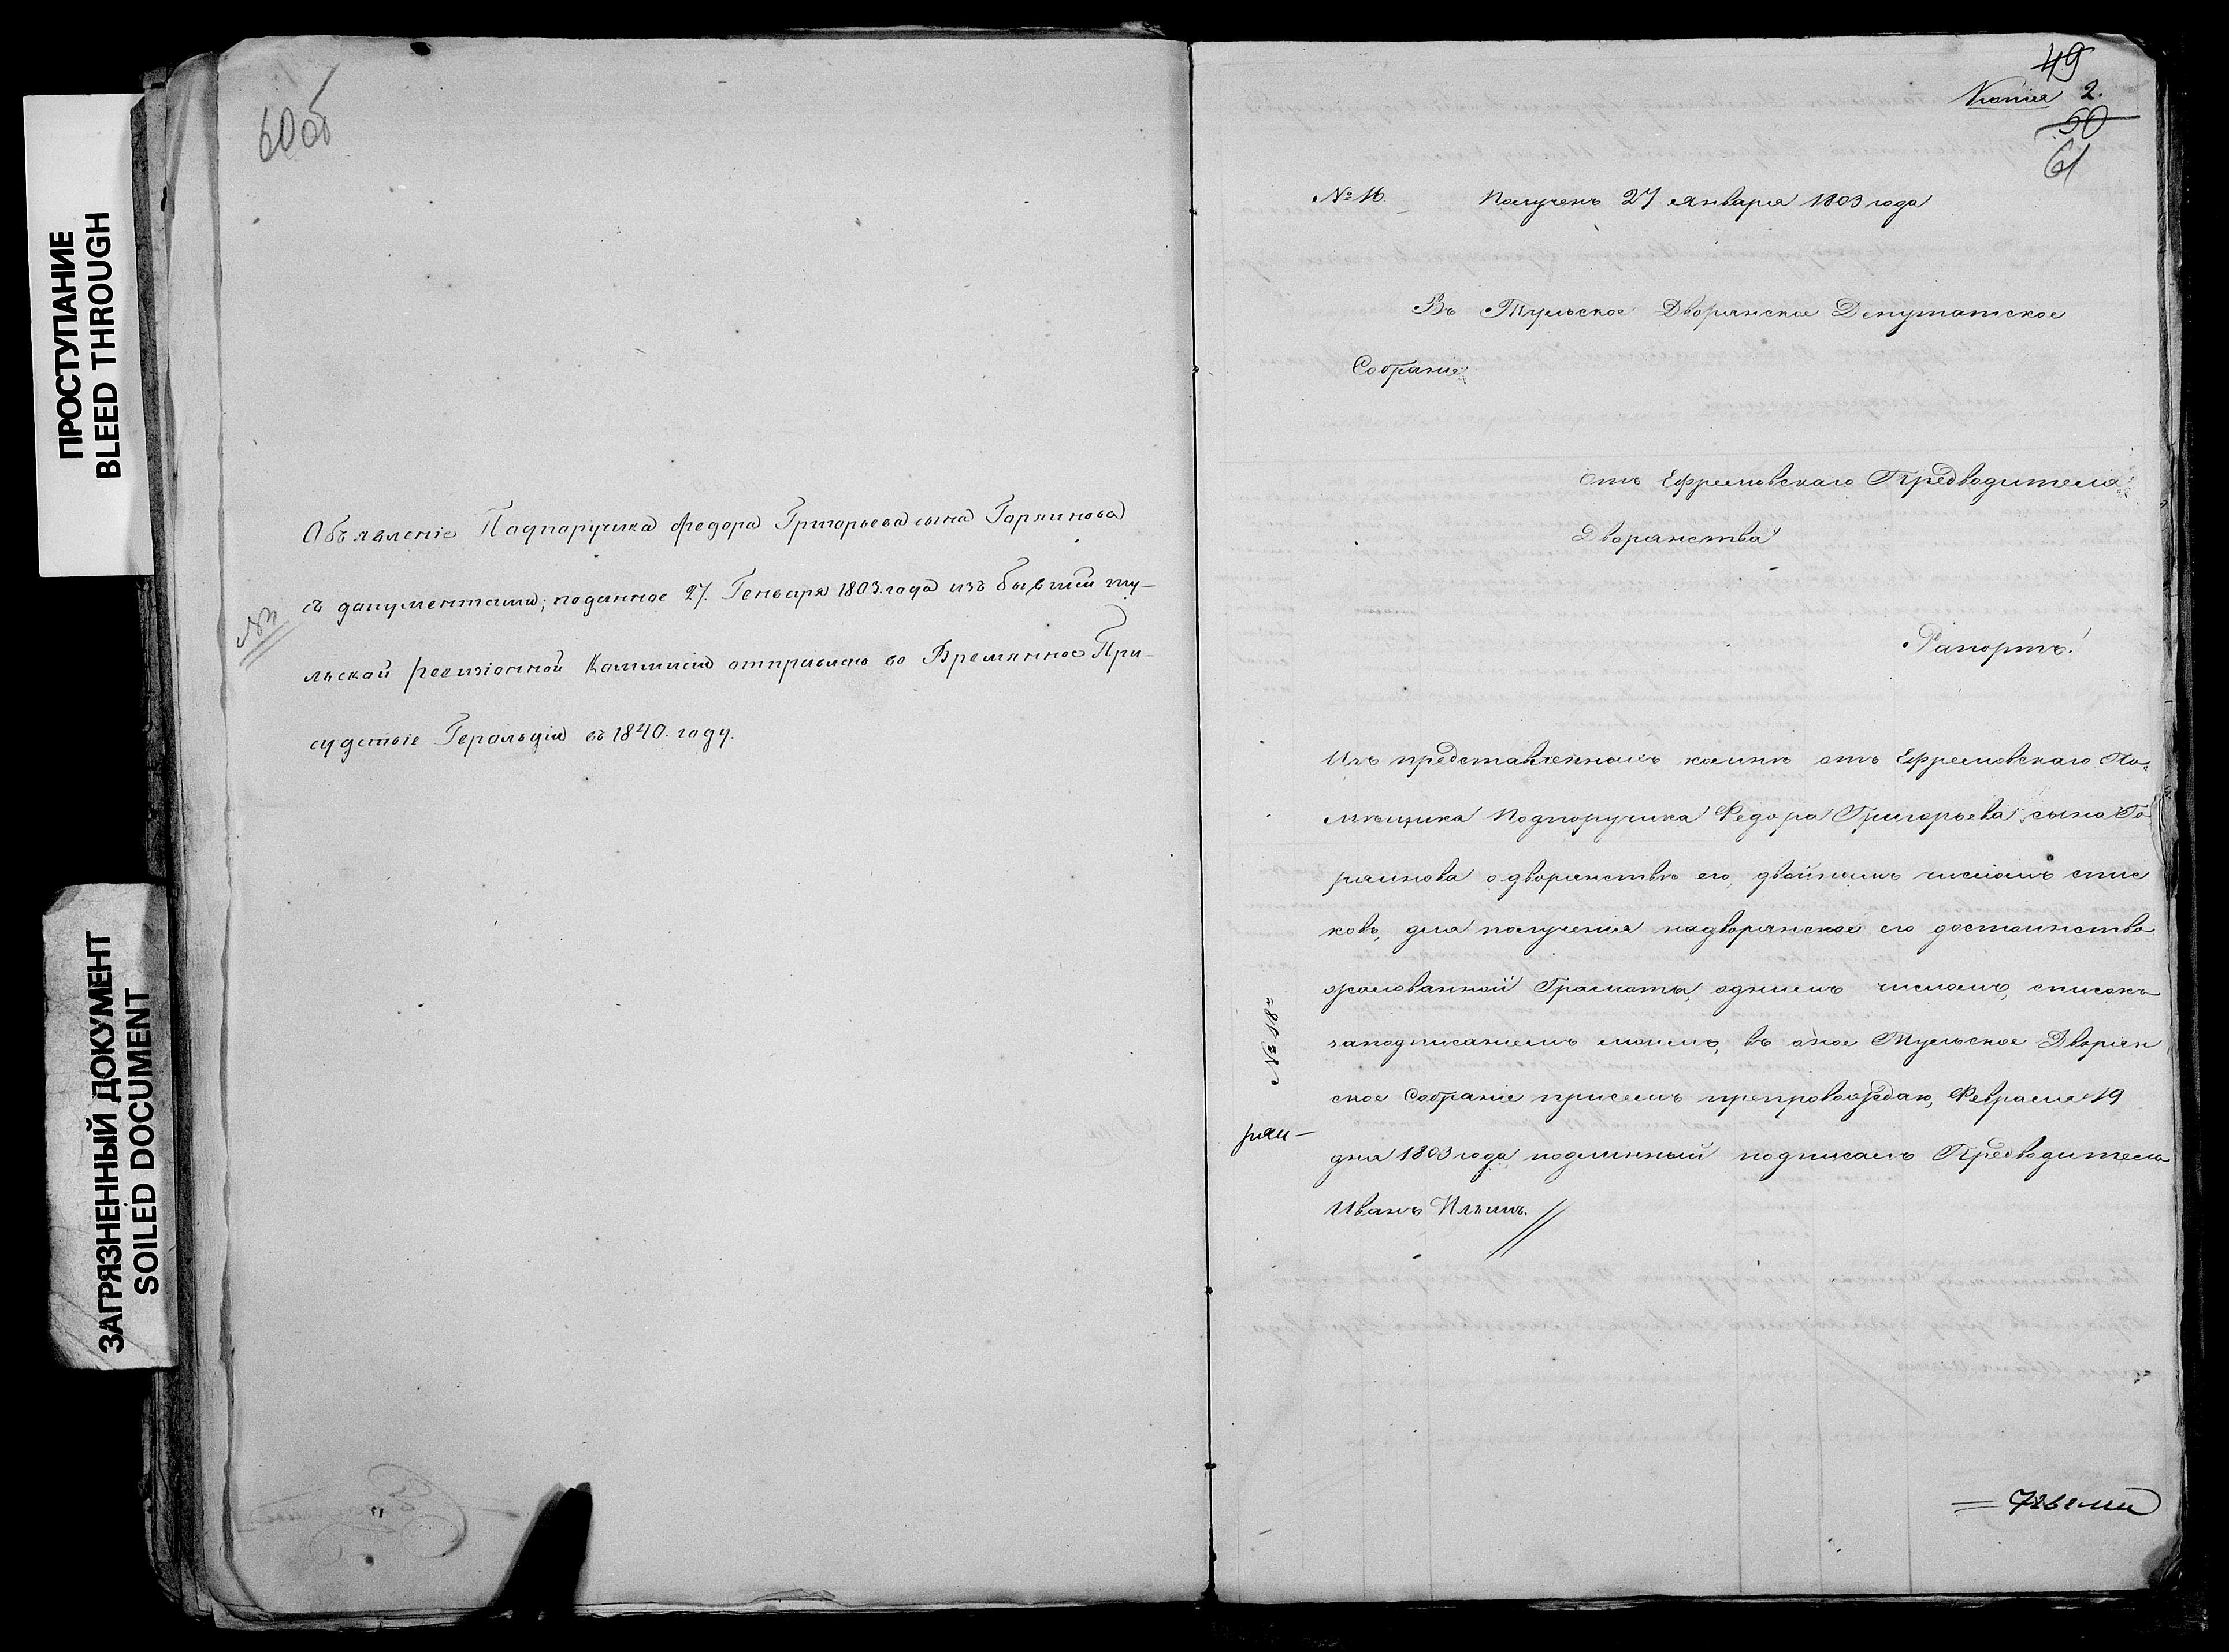 ПРОСТУПАНИЕ
BLEED THROUGH
ЗАГРЯЗНЕННЫЙ ДОКУМЕНТ
SOILED DOCUMENT
60об
Объявленіе Падпаручика Федора Григорьева сына Гаряинова
съ дакументами, поданное 27. Генваря 1803. года изъ бывшей ту-
льскай ревизіонной Каммисіи отправлено во Времянное При-
судствіе Герольдіи въ 1840. году.
49
Копия 2.
50
61
№ 16. Получено 27 января 1803 года
Въ Тульское Дворянское Депутатское
Собраніе
Отъ Ефремовскаго Предводителя
Дворянства
Рапортъ.
Изъ представленныхъ комнѣ отъ Ефремовскаго По-
мѣщика Подпоручика Федора Григорьева сына Го
раинова о дворянствѣ его, двойнымъ числомъ спис
ковъ, для полученія надворянское его достоинство
жалованной Грамоты, однимъ числомъ, списокъ
заподписаніемъ моимъ, въ оное Тульское Дворян
ское Собраніе присемъ препровождаю, Февраля 19
дня 1803 года, подлинный подписалъ Предводитель
Иванъ Ильинъ.
№ 18